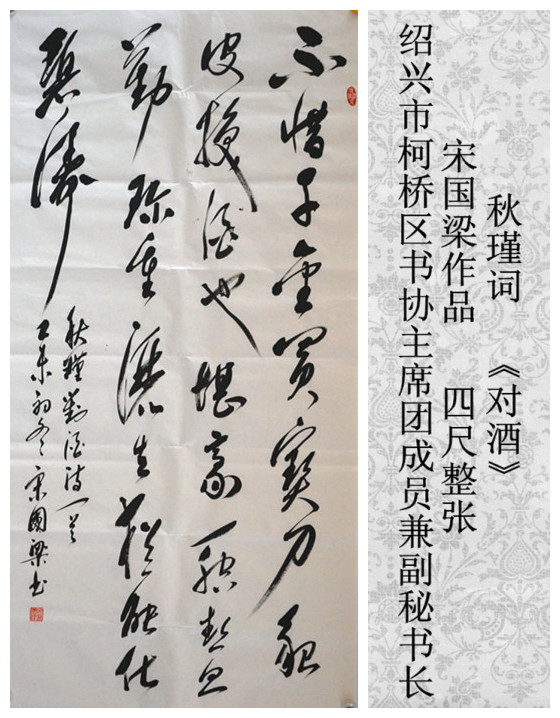 秋瑾词 《对酒》
宋国梁作品 四尺整张
绍兴市柯桥区书协主席团成员兼副秘书长
不惜千金買寶刀貂
裘換酒也堪豪一腔熱血
勤珍重灑去猶能化
碧濤
秋瑾對酒詩一首
乙未初冬宋國梁书